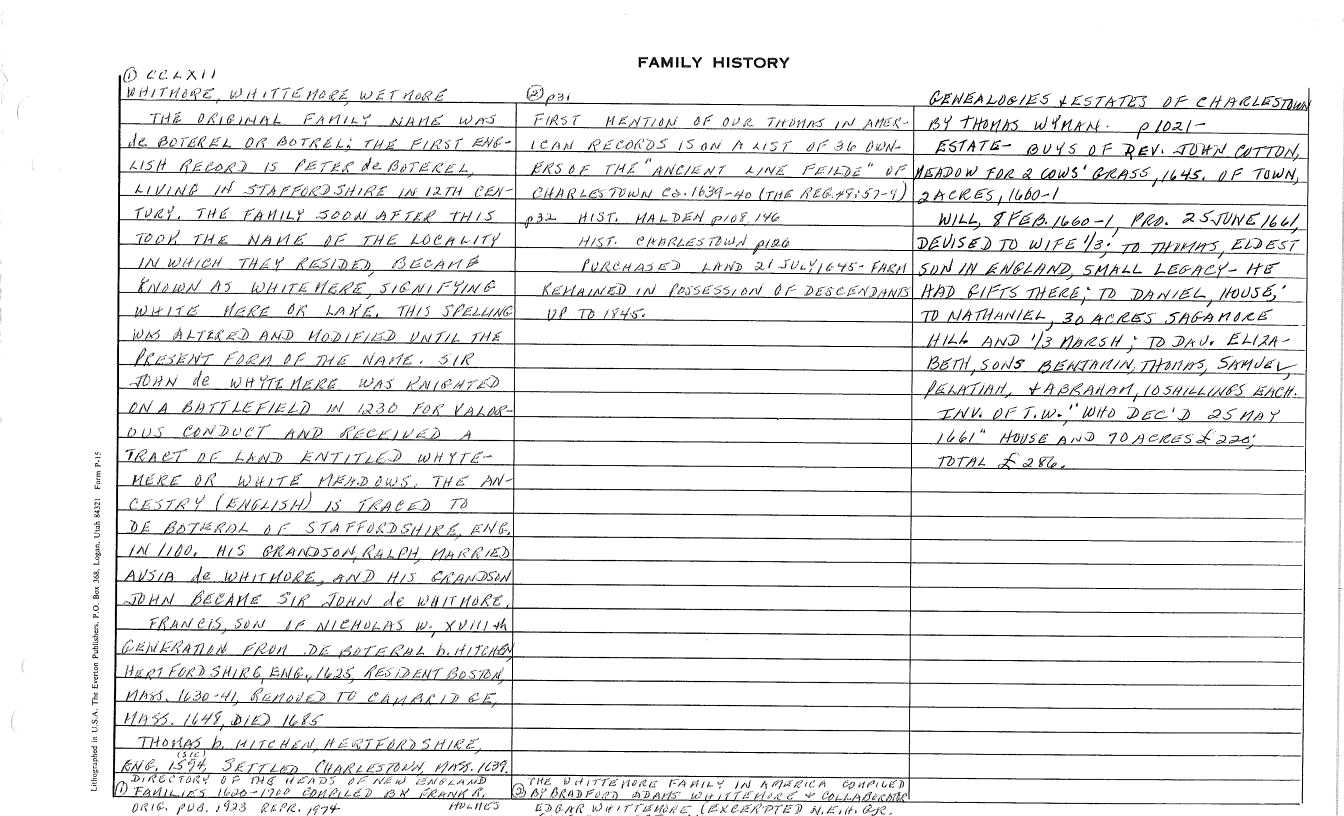 FAMILY HISTORY
① CCLXII
WHITMORE, WHITTEMORE, WETMORE
THE ORIGINAL FAMILY NAME WAS
de BOTEREL OR BOTREL; THE FIRST ENG-
LISH RECORD IS PETER de BOTEREL,
LIVING IN STAFFORDSHIRE IN 12TH CEN-
TURY. THE FAMILY SOON AFTER THIS
TOOK THE NAME OF THE LOCALITY
IN WHICH THEY RESIDED, BECAME
KNOWN AS WHITEMERE, SIGNIFYING
WHITE MERE OR LAKE. THIS SPELLING
WAS ALTERED AND MODIFIED UNTIL THE
PRESENT FORM OF THE NAME. SIR
JOHN de WHYTEMERE WAS KNIGHTED
ON A BATTLEFIELD IN 1230 FOR VALOR-
OUS CONDUCT AND RECEIVED A
TRACT OF LAND ENTITLED WHYTE-
MERE OR WHITE MEADOWS. THE AN-
CESTRY (ENGLISH) IS TRACED TO
DE BOTERAL OF STAFFORDSHIRE, ENG.
IN 1100. HIS GRANDSON, RALPH, MARRIED
AVSIA de WHITMORE, AND HIS GRANDSON
JOHN BECAME SIR JOHN de WHITMORE.
FRANCIS, SON OF NICHOLAS W., XVIIIth
GENERATION FROM DE BOTERAL b. HITCHEN,
HERTFORDSHIRE, ENG., 1625, RESIDENT BOSTON,
MASS. 1630-41, REMOVED TO CAMBRIDGE,
MASS. 1648, DIED 1685
THOMAS b. HITCHEN, HERTFORDSHIRE,
(SIC)
ENG. 1594, SETTLED CHARLESTOWN, MASS. 1639.
① DIRECTORY OF THE HEADS OF NEW ENGLAND
FAMILIES 1620-1700 COMPILED BY FRANK R.
HOLMES
ORIG. PUB. 1923 REPR. 1974
② p31
FIRST MENTION OF OUR THOMAS IN AMER-
ICAN RECORDS IS ON A LIST OF 36 OWN-
ERS OF THE "ANCIENT LINE FEILDE" OF
CHARLESTOWN Ca. 1639-40 (THE REG. 48:57-9)
p32 HIST. MALDEN p108, 146
HIST. CHARLESTOWN p126
PURCHASED LAND 21 JULY 1645 - FARM
REMAINED IN POSSESSION OF DESCENDANTS
UP TO 1845.
② THE WHITTEMORE FAMILY IN AMERICA COMPILED
BY BRADFORD ADAMS WHITTEMORE & COLLABORATOR
EDGAR WHITTEMORE, (EXCERPTED N.E.H. GR.
GENEALOGIES & ESTATES OF CHARLESTOWN
BY THOMAS WYMAN. p1021-
ESTATE- BUYS OF REV. JOHN COTTON,
MEADOW FOR 2 COWS' GRASS, 1645. OF TOWN,
2 ACRES, 1660-1
WILL, 8 FEB. 1660-1, PRO. 25 JUNE 1661,
DEVISED TO WIFE 1/3; TO THOMAS, ELDEST
SON IN ENGLAND, SMALL LEGACY - HE
HAD GIFTS THERE; TO DANIEL, HOUSE;
TO NATHANIEL, 30 ACRES SAGAMORE
HILL AND 1/3 MARSH; TO DAU. ELIZA-
BETH, SONS BENJAMIN, THOMAS, SAMUEL,
PELATIAH, & ABRAHAM, 10 SHILLINGS EACH.
INV. OF T.W., "WHO DEC'D 25 MAY
1661" HOUSE AND 70 ACRES £ 220;
TOTAL £ 286.
Lithographed in U.S.A. The Everton Publishers, P.O. Box 368, Logan, Utah 84321 Form P-15